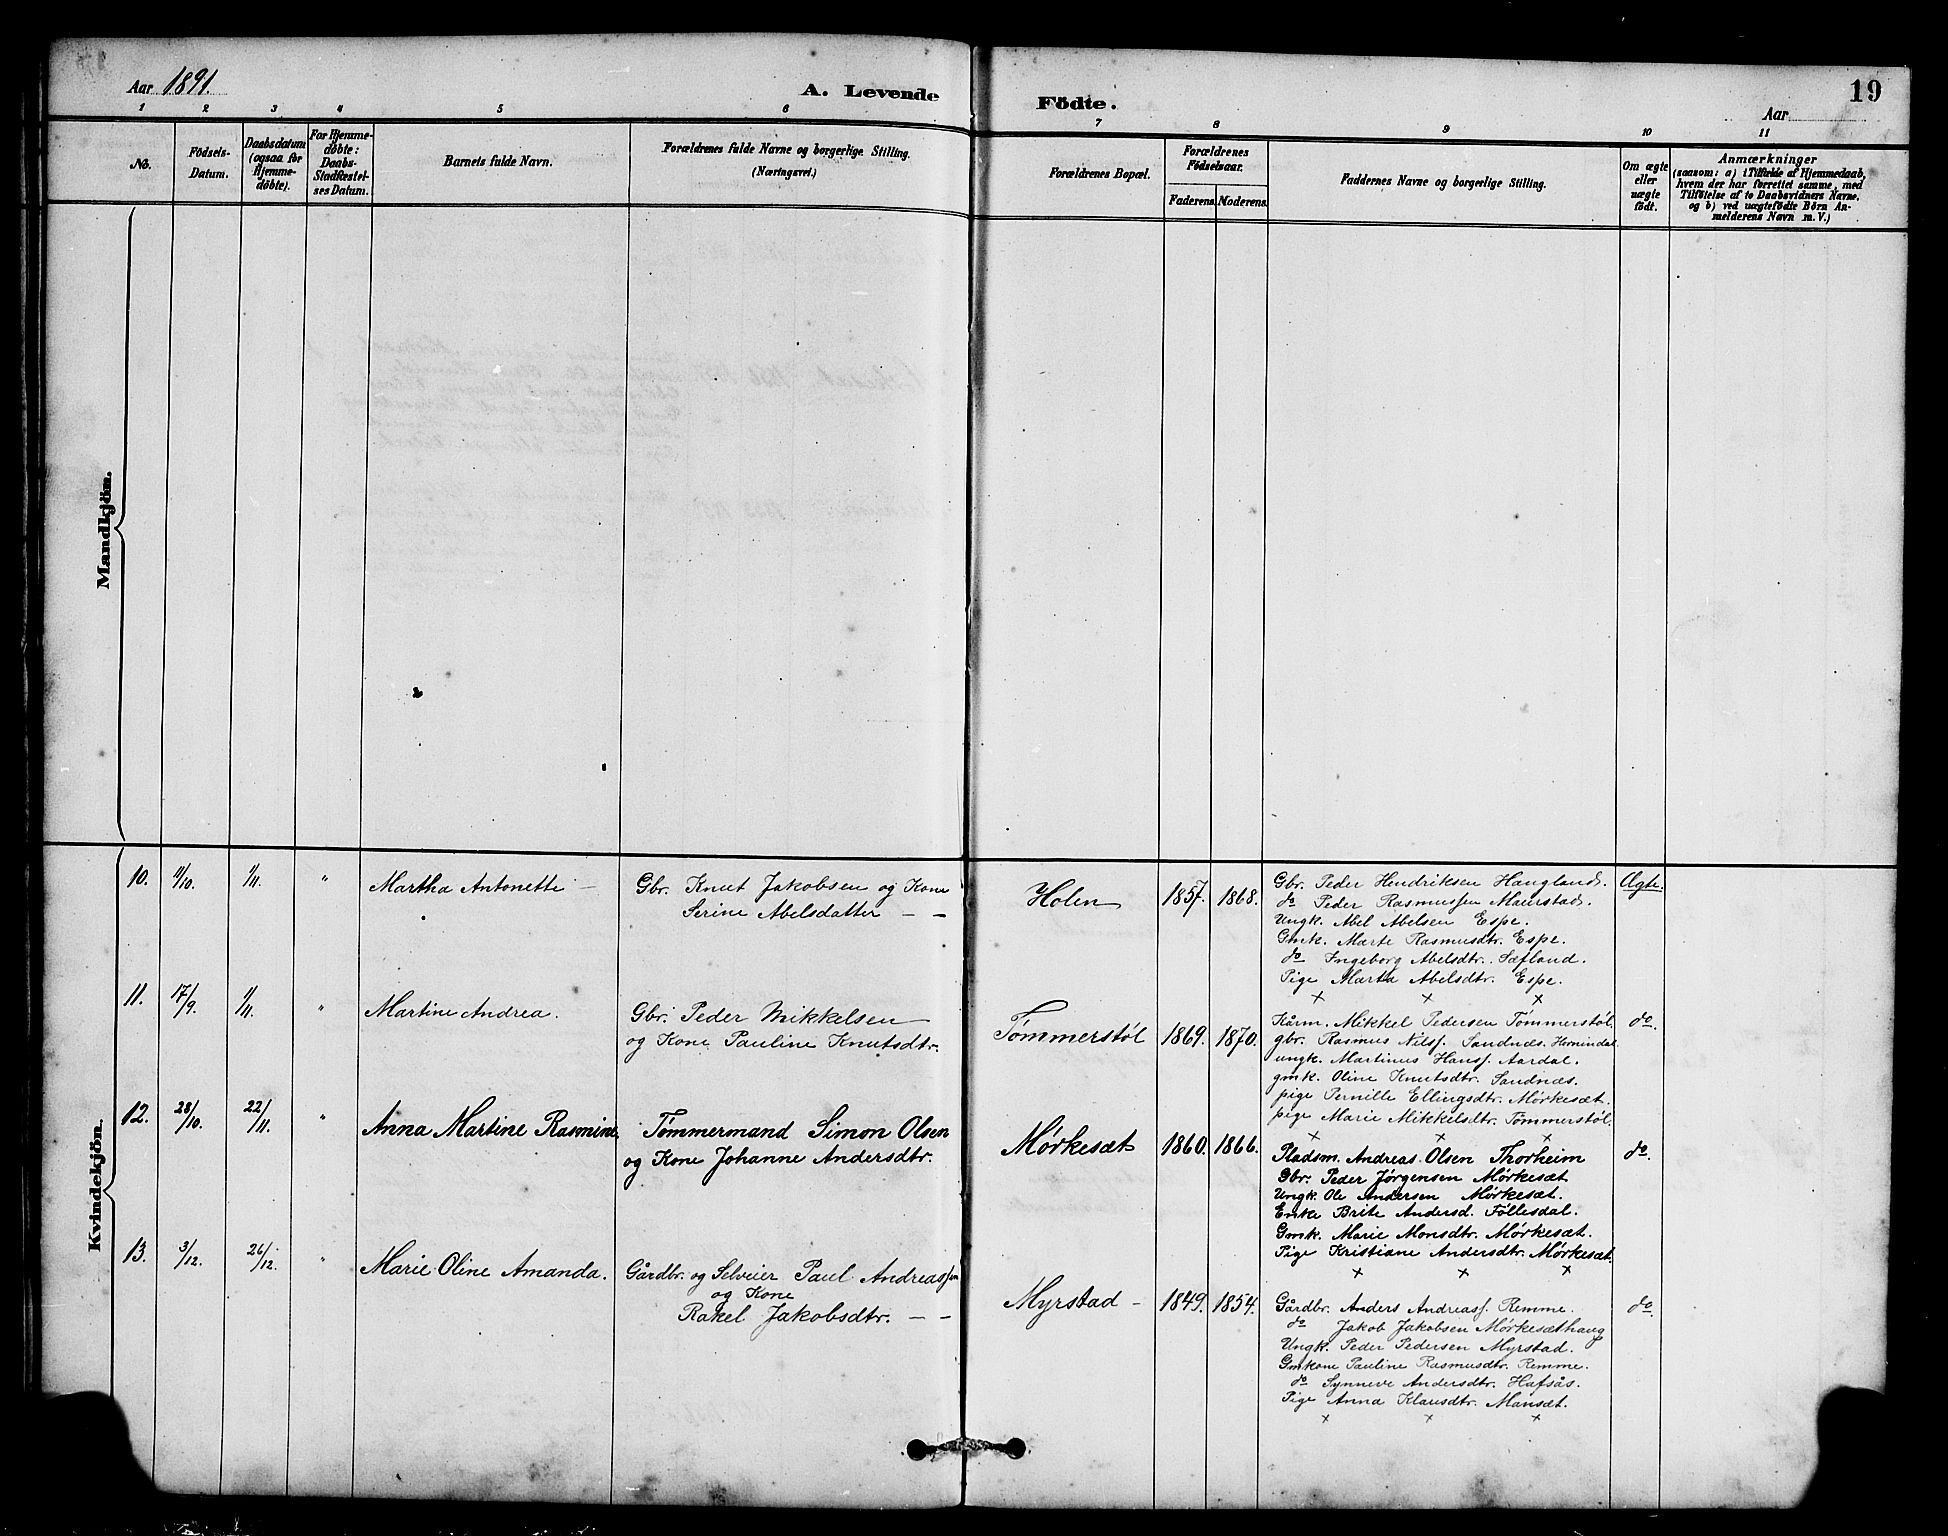 Aar 1891.
A. Levende
Födte.
Aar
19
1 2 3 4 5 6 7 8 9 10 11
No.
Födsels-
Datum.
Daabsdatum
(ogsaa for
Hjemme-
döbte).
For Hjemme-
döbte:
Daabs-
Stadfæstel-
ses Datum.
Barnets fulde Navn.
Forældrenes fulde Navne og borgerlige Stilling.
(Næringsvei.)
Forældrenes Bopæl.
Forældrenes
Födselsaar.
Faderens. Moderens.
Faddernes Navne og borgerlige Stilling.
Om ægte
eller
uægte
födt.
Anmærkninger
(saasom: a) i Tilfælde af Hjemmedaab,
hvem der har forrettet samme, med
Tilföielse af to Daabsvidners Navne.
og b) ved uægtefödte Börn An-
melderens Navn m. V.)
Mandkjön.
Kvindekjön.
10. 11/10. 1/11. " Martha Antonette –
Gbr. Knut Jakobsen og Kone
Serine Abelsdatter – –
Holen 1857. 1868.
Gbr. Peder Hendriksen Haugland.
do Peder Rasmussen Maurstad.
Ungk. Abel Abelsen Espe.
Gmk. Marte Rasmusdtr. Espe.
do Ingeborg Abelsdtr. Sæfland.
Pige Marta Abelsdtr. Espe.
x x x
Ægte.
11. 17/9. 1/11. " Martine Andrea.
Gbr. Peder Mikkelsen
og Kone Pauline Knutsdtr.
Tømmerstøl 1869. 1870.
Kårm. Mikkel Pedersen Tømmerstøl.
gbr. Rasmus Nilss. Sandnæs. Hornindal
ungk. Martinus Hanss. Aardal.
gmk. Oline Knutsdtr. Sandnæs.
pige Pernille Ellingsdtr. Mørkesæt.
pige Marie Mikkelsdtr. Tømmerstøl.
x x x
do.
12. 28/10. 22/11. " Anna Martine Rasmine.
Tømmermand Simon Olsen
og Kone Johanne Andersdtr.
Mørkesæt 1860. 1866.
Pladsm. Andreas Olsen Thorheim
Gbr. Peder Jørgensen Mørkesæt
Ungk. Ole Andersen Mørkesæt.
Enke Brite Andersd. Føllesdal.
Gmk. Marie Monsdtr. Mørkesæt.
Pige Kristiane Andersdtr. Mørkesæt.
x x x
do.
13. 3/12. 26/12. " Marie Oline Amanda.
Gårdbr. og Selveier Paul Andreassen
og Kone
Rakel Jakobsdtr. – –
Myrstad – 1849. 1854.
Gårdbr. Anders Andreass. Remme.
do Jakob Jakobsen Mørkesæthaug
Ungk. Peder Pedersen Myrstad.
Gmkone Pauline Rasmusdtr. Remme.
do Synneve Andersdtr. Hafsås.
Pige Anna Klausdtr. Mansæt.
x x x
do.